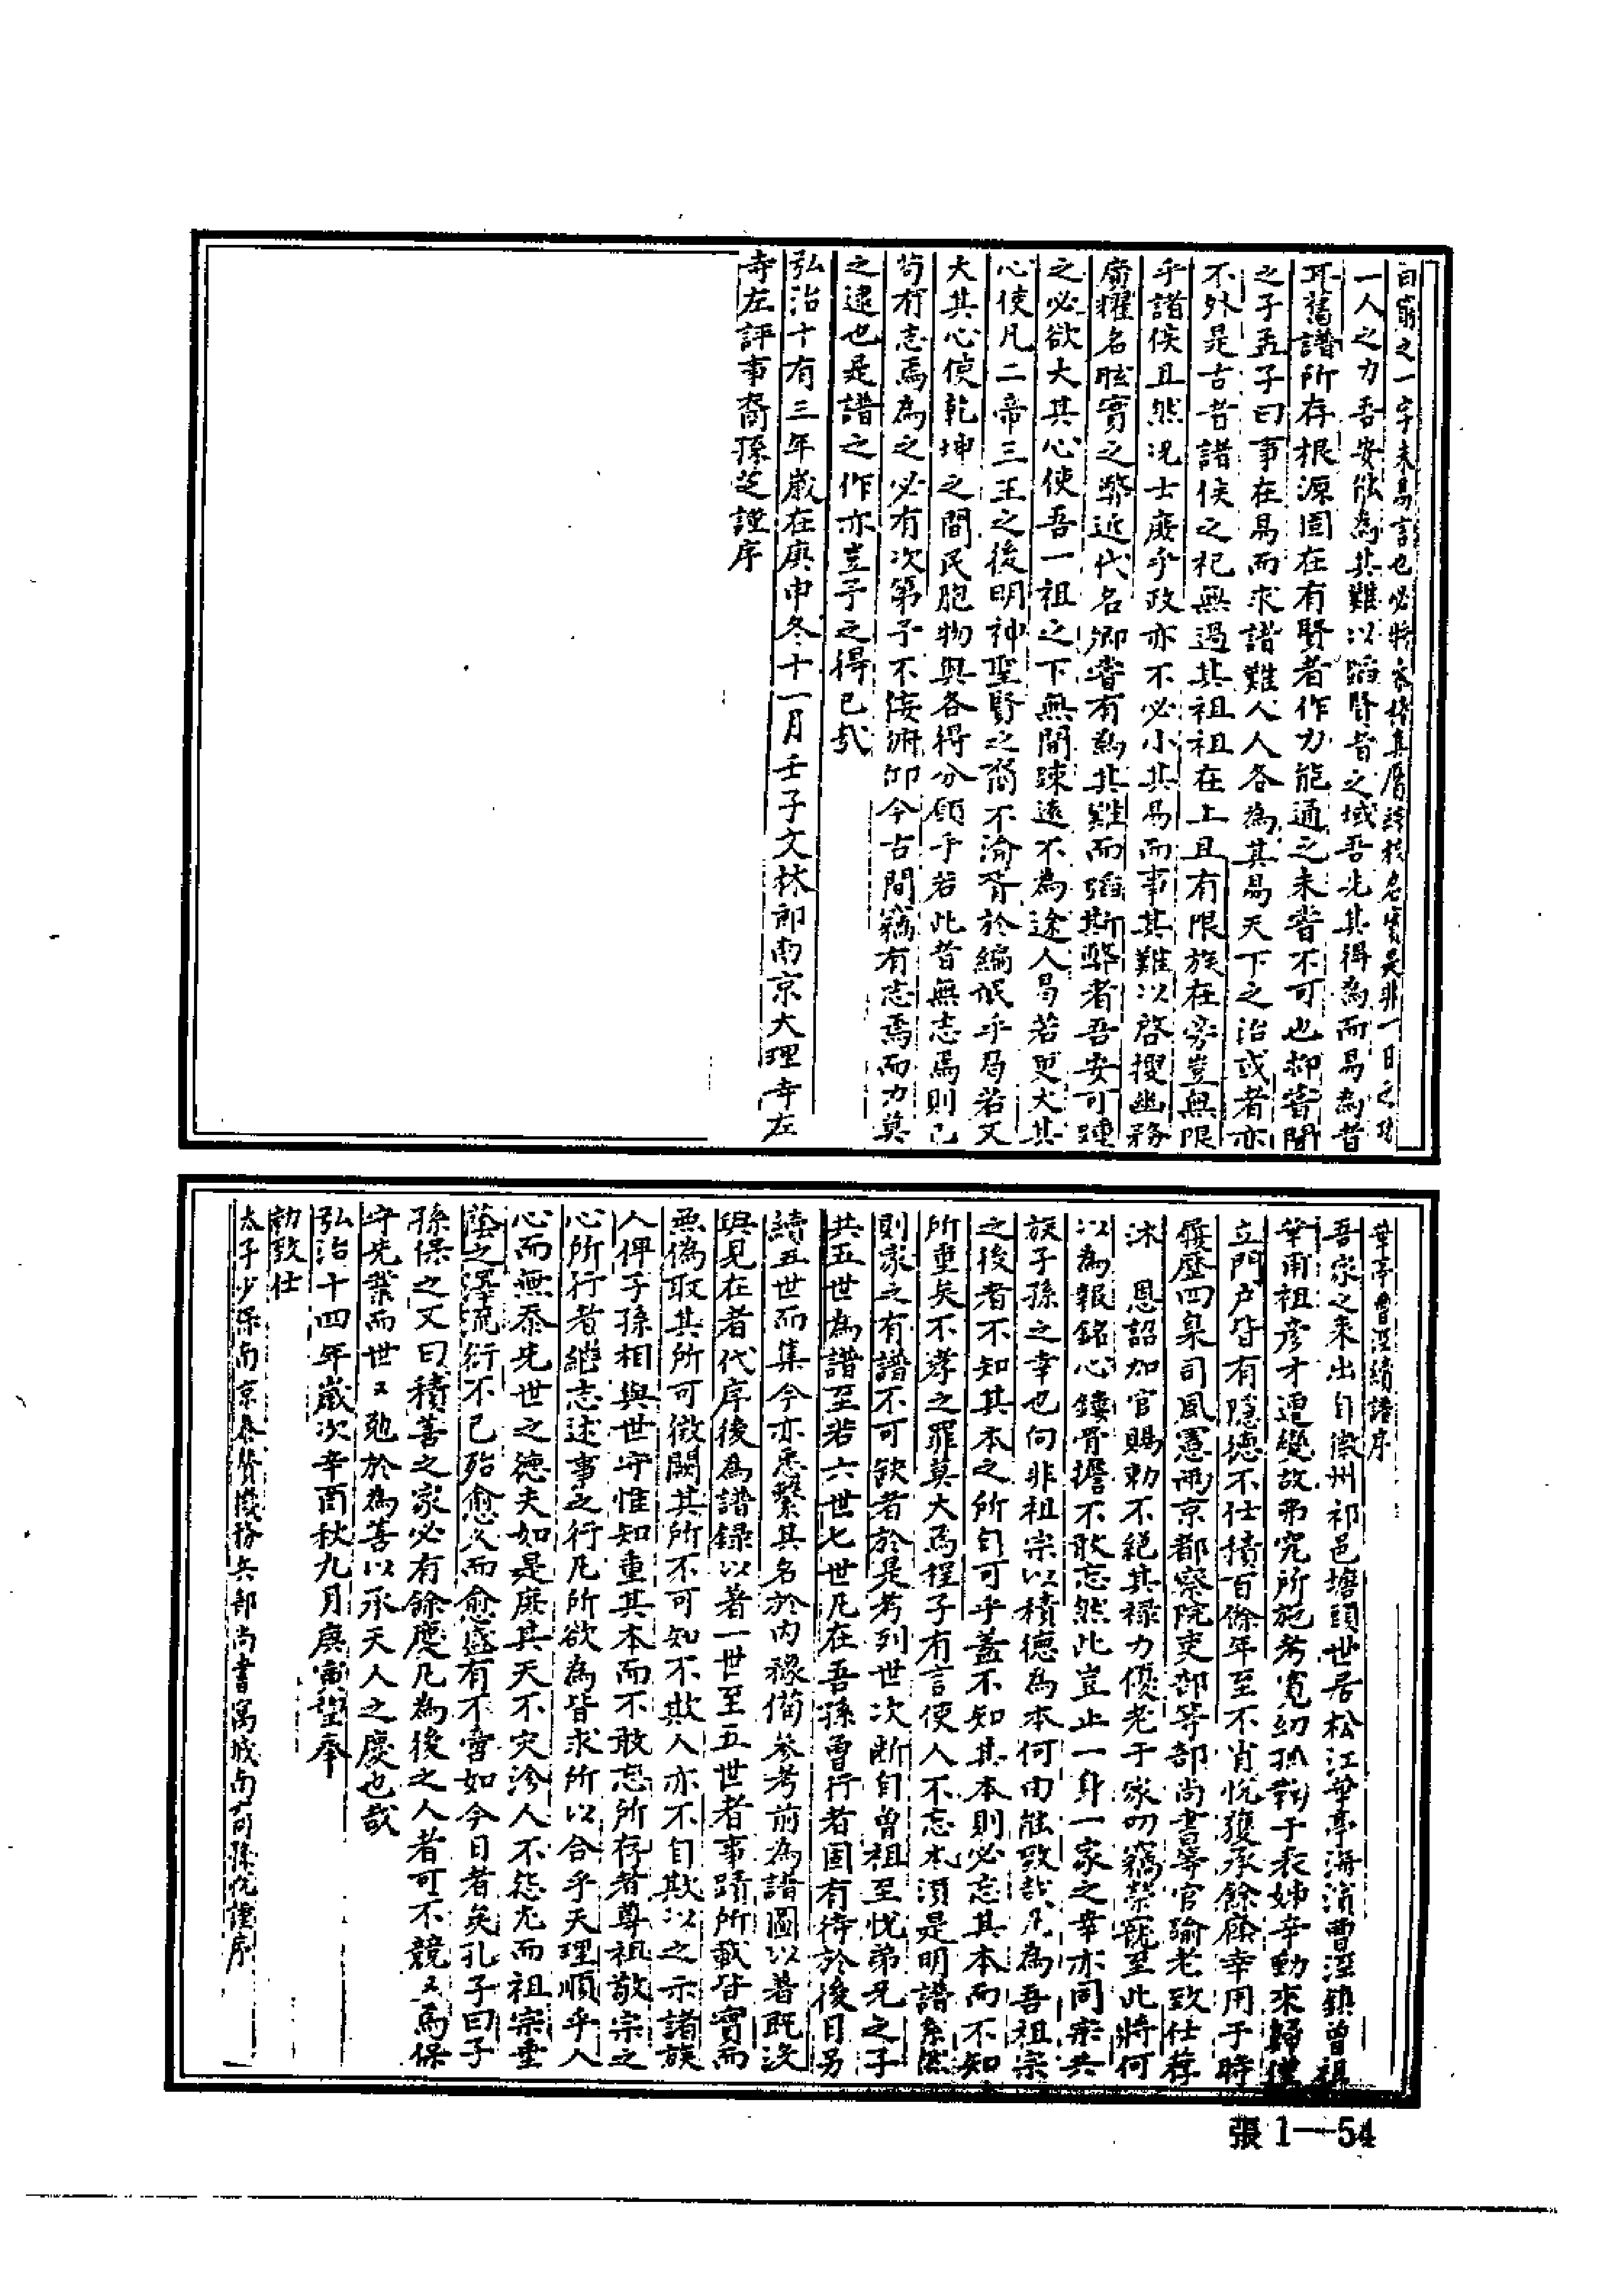 日窮之一字未易言也必將名實是非一日之
一人之力吾安能為其難以蹈賢者之域吾先其得為而易為者
耳舊譜所存根源固在有賢者作力能通之未嘗不可也抑嘗聞
之子孟子曰事在易而求諸難人人各為其易天下之治或者亦
不外是古者諸侯之祀無過其祖祖在上且有限族在旁豈無限
乎諸侯且然况士庶乎政亦不必小其易而事其難以啓搜幽務
廣耀名眩實之弊近代名卿嘗有為其難而蹈斯弊者吾安可踵
之必欲大其心使吾一祖之下無間踈遠不為途人曷若更大其
心使凡二帝三王之後明神聖賢之裔不淪胥於編氓乎曷若又
大其心使乾坤之間民胞物與各得分願乎若此昔無志焉則已
苟有志焉為之必有次第予不佞俯仰今古間竊有志焉而力莫
之逮也是譜之作亦豈予之得已哉
弘治十有三年歲在庚申冬十一月壬子文林郎南京大理寺左
寺左評事裔孫芝謹序
華亭曹涇續譜序
吾家之来出自徽州祁邑塘頭世居松江華亭海濱曹涇鎮曾祖
華甫祖彦才遭變故弗究所施考寛幼孤鞠于表姊辛勤來歸僅
立門戶皆有隱德不仕積百餘年至不肖悅獲承餘廕幸用于時
履歷四臬司風憲兩京都察院吏部等部尚書等官踰老致仕荐
沐　恩詔加官賜勑不絕其禄力優老于家叨竊榮寵至此將何
以為報銘心鏤骨擔不敢忘然此豈止一身一家之幸亦同宗共
族子孫之幸也向非祖宗以積德為本何由能致哉凡為吾祖宗
之後者不知其本之所自可乎蓋不知其本則必忘其本而不知
所重矣不孝之罪莫大焉程子有言使人不忘本須是明譜系然
則家之有譜不可缺者於是考列世次断自曾祖至悅弟兄之子
共五世為譜至若六世七世凡在吾孫曾行者固有待於後日另
續五世而集今亦悉繫其名於内稼備参考前為譜圖以著既沒
與見在者代序後為譜録以著一世至五世者事蹟所載皆實而
無偽取其所可徴闕其所不可知不欺人亦不自欺以之示諸族
人俾子孫相與世守惟知重其本而不敢忘所存者尊祖敬宗之
心所行者繼志述事之行凡所欲為皆求所以合乎天理順乎人
心而無忝先世之德夫如是庶其天不灾沴人不怨尤而祖宗垂
蔭之澤流衍不已殆愈久而愈盛有不啻如今日者矣孔子曰子
孫保之又曰積善之家必有餘慶凡為後之人者可不競〻焉保
守先業而世〻勉於為善以承天人之慶也哉
弘治十四年歲次辛酉秋九月庚寅望奉
勑致仕
太子少保南京叅贊機務兵部尚書寓城南八十可孫悅謹序
張1—54